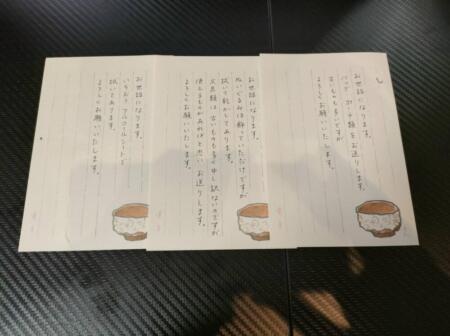 お世話になります。
バッグ、ポーチ類をお送りします。
古いものも多いですが
よろしくお願いいたします。
お世話になります。
ぬいぐるみは飾っていただけですが
拭いて乾かしてあります。
文具類は古いものも多く申し訳ないのですが
使えるものがあればと思い、お送りします。
よろしくお願いいたします。
お世話になります。
いちおう アルコールシートで
拭いてあります。
よろしくお願いいたします。